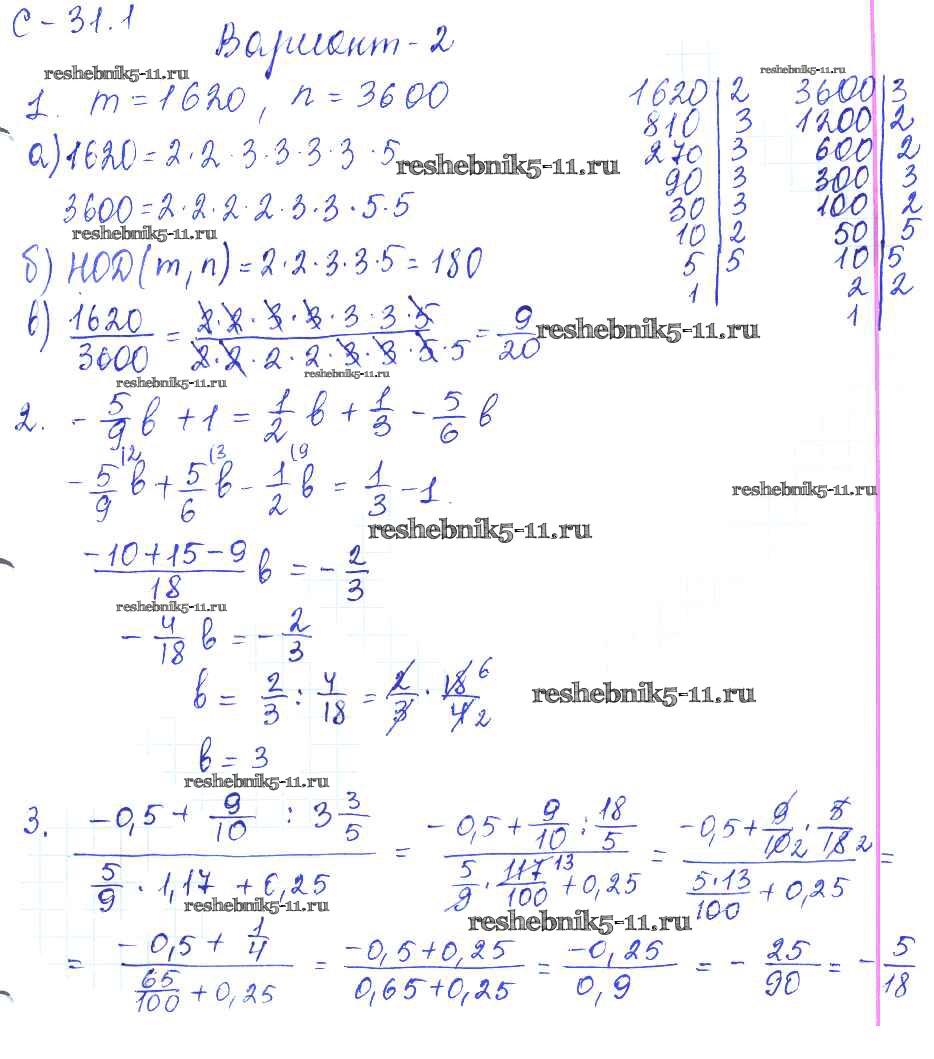 С - 31.1
Вариант - 2
reshebnik5-11.ru
reshebnik5-11.ru
1. m = 1620, n = 3600
1620 | 2   3600 | 3
810 | 3   1200 | 2
270 | 3   600 | 2
90 | 3   300 | 3
30 | 3   100 | 2
10 | 2   50 | 5
5 | 5   10 | 5
1 |   2 | 2
1
а) 1620 = 2 · 2 · 3 · 3 · 3 · 3 · 5
reshebnik5-11.ru
3600 = 2 · 2 · 2 · 2 · 3 · 3 · 5 · 5
reshebnik5-11.ru
б) НОД (m, n) = 2 · 2 · 3 · 3 · 5 = 180
в) 1620/3600 = 2·2·3·3·3·3·5 / 2·2·2·2·3·3·5·5 = 9/20
reshebnik5-11.ru
reshebnik5-11.ru
reshebnik5-11.ru
2. - 5/9 в + 1 = 1/2 в + 1/3 - 5/6 в
- 5/9 (2 в + 5/6 (3 в - 1/2 (9 в = 1/3 - 1.
reshebnik5-11.ru
reshebnik5-11.ru
-10 + 15 - 9 / 18 в = - 2/3
reshebnik5-11.ru
- 4/18 в = - 2/3
в = 2/3 : 4/18 = 2/3 · 18 6 / 4 2
reshebnik5-11.ru
в = 3
reshebnik5-11.ru
3. -0,5 + 9/10 : 3 3/5 / 5/9 · 1,17 + 0,25 = -0,5 + 9/10 : 18/5 / 5/9 · 117 13 /100 + 0,25 = -0,5 + 9/10 2 · 5/18 2 / 5·13/100 + 0,25 =
reshebnik5-11.ru
reshebnik5-11.ru
= -0,5 + 1/4 / 65/100 + 0,25 = -0,5 + 0,25 / 0,65 + 0,25 = -0,25 / 0,9 = - 25/90 = - 5/18